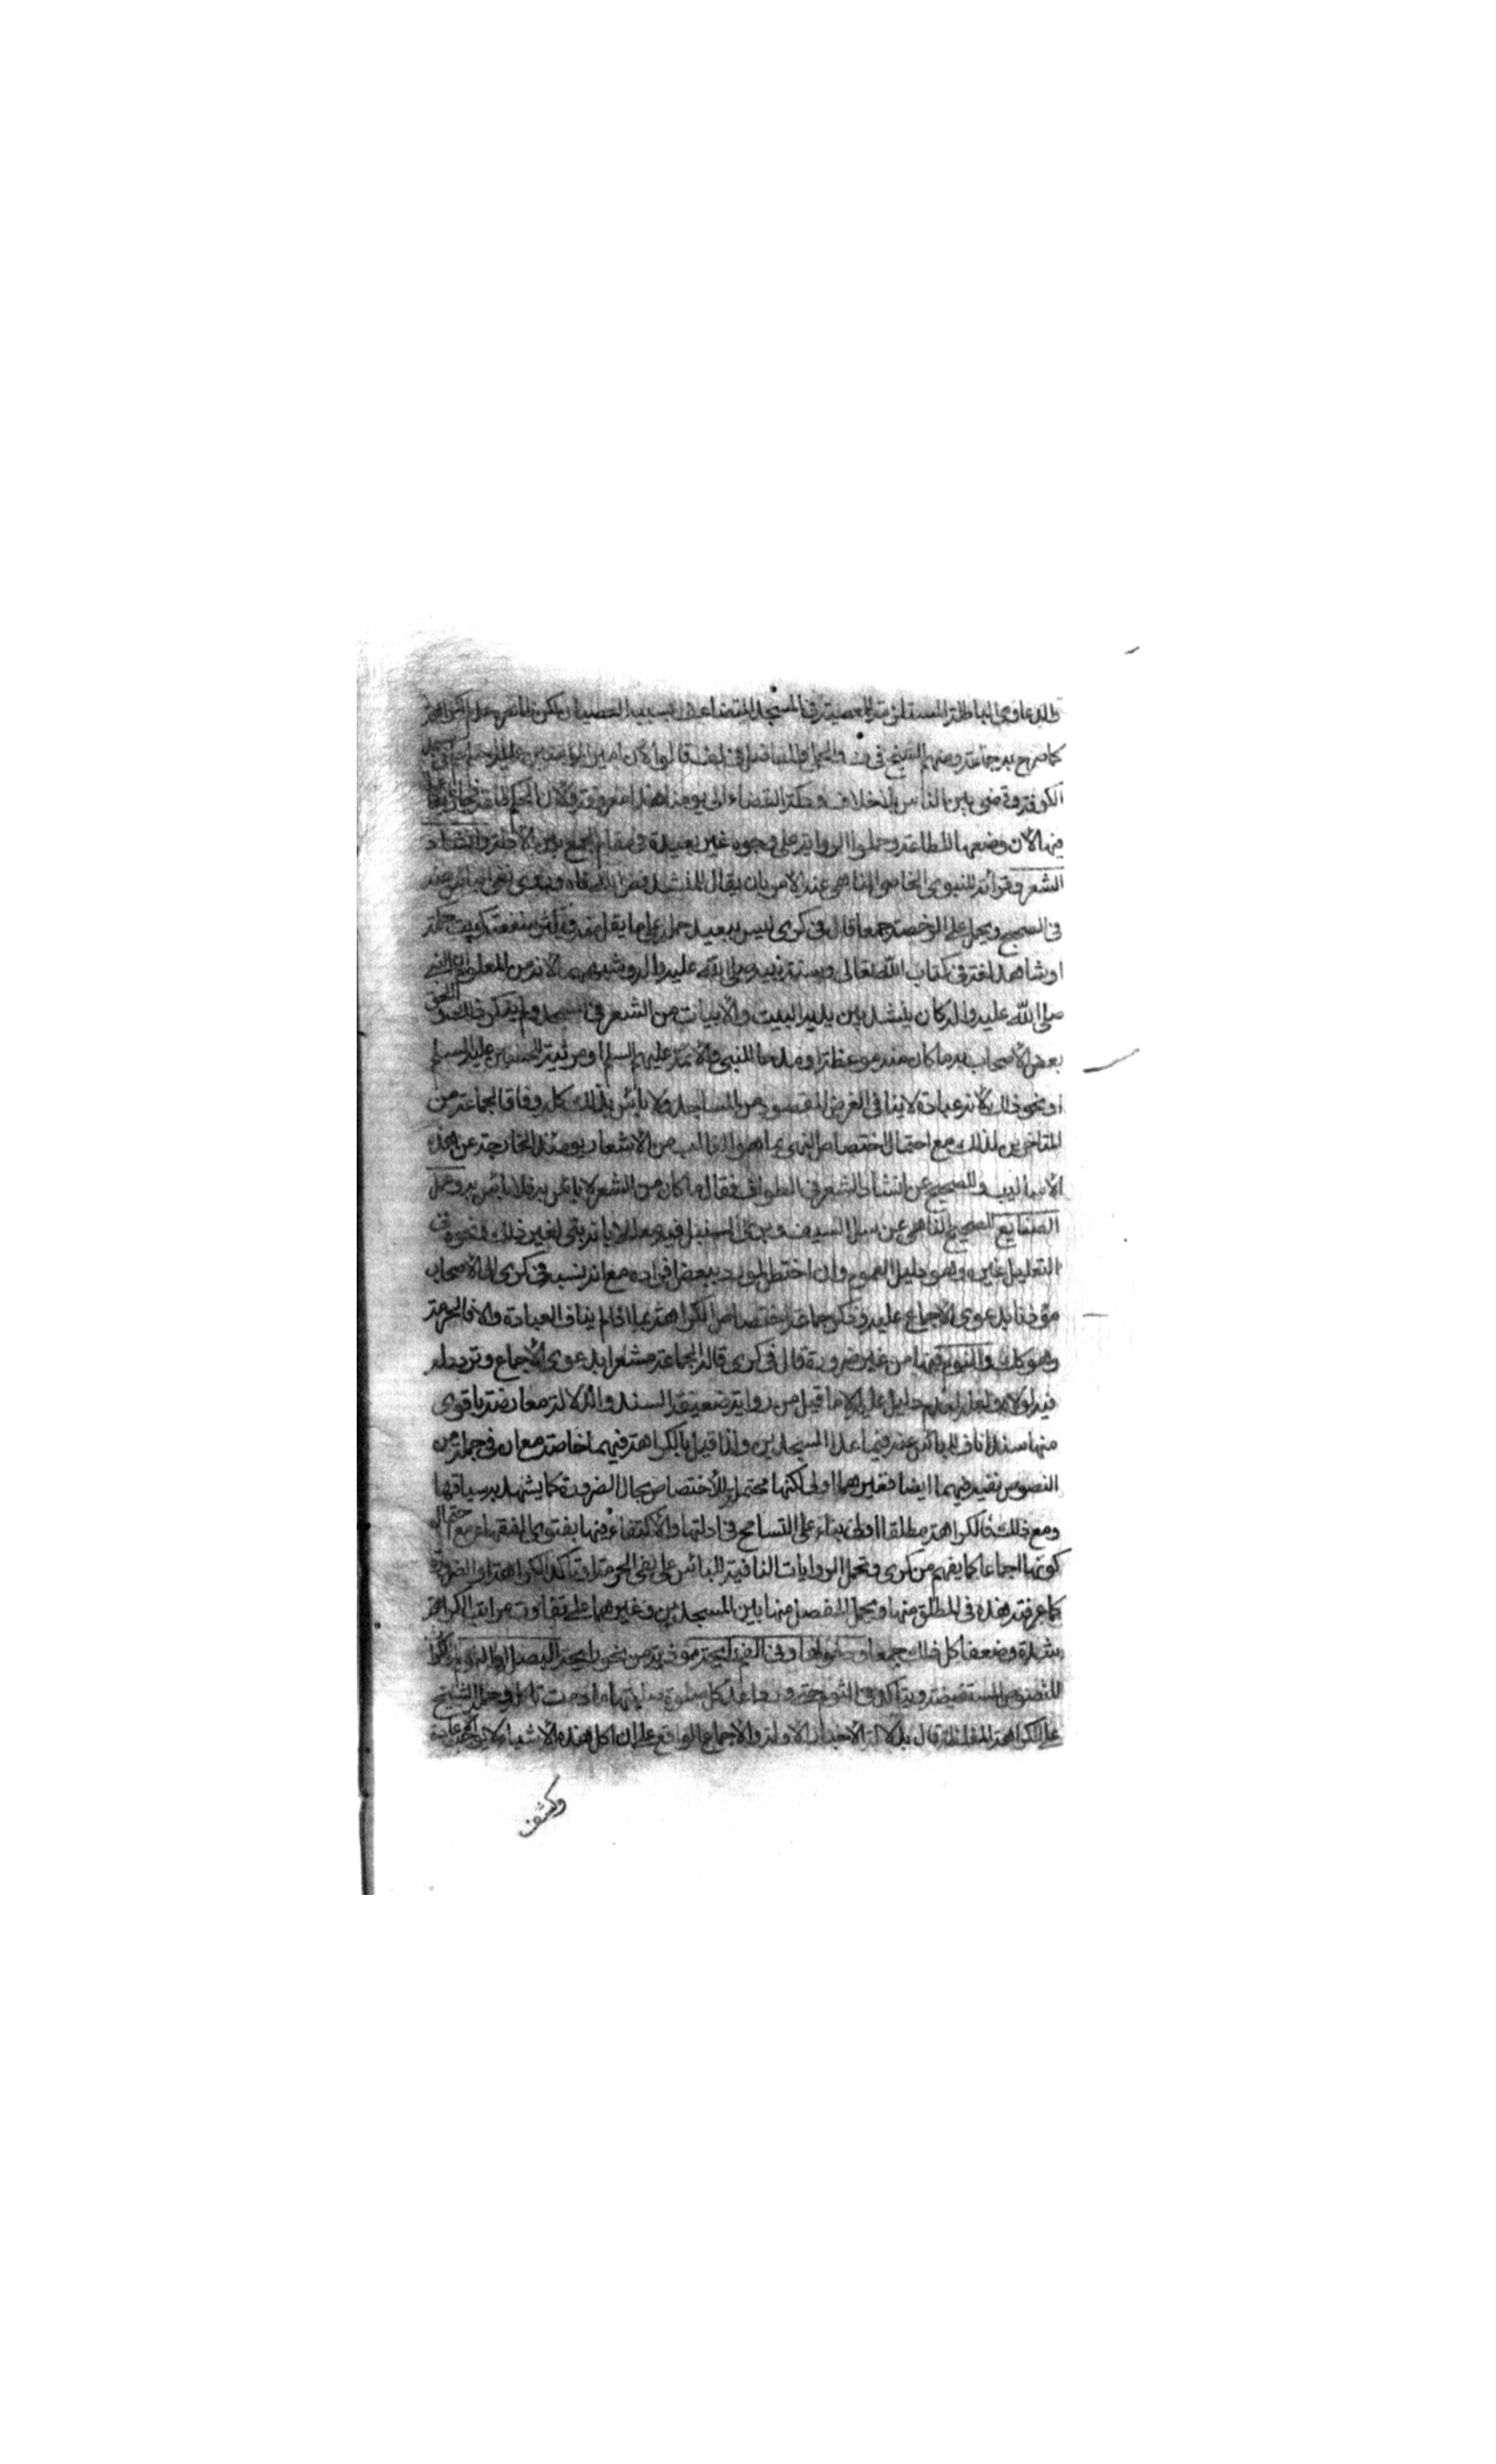 والدعاوى الباطلة المستلزمة للمعصية في المسجد المتضاعف بسببه العصيان لكن ظاهرهم عدم الكراهة
كما صرح به جماعة ومنهم الشيخ في ف والحلي والفاضل في لف قالوا لان امير المؤمنين عليه السلم حكم في مسجد
الكوفة وقضى بين الناس بلا خلاف ودكة القضاء الى يومنا هذا معروفة ولان الحكم طاعة فجاز ايقاعها
فيها لان وضعها للطاعة وحملوا الرواية على وجوه غير بعيدة في مقام الجمع بين الادلة وانشاد
الشعر وقرائته للنبوي الخاصي الناهي عنه الامر بان يقال للمنشد فض الله فاه ونفى البأس عنه
في الصحيح ويحمل على الرخصة جمعا قال في كرى ليس ببعيد حمل على ما يقل منه وتكثر منفعته كبيت حكمة
او شاهد لغة في كتاب الله تعالى وسنة نبيه صلى الله عليه واله وشبههما لانه من المعلوم ان النبي
صلى الله عليه واله كان ينشد بين يديه البيت والابيات من الشعر في المسجد ولم ينكر ذلك والحق
بعض الاصحاب به ما كان منه موعظة او مدحا للنبي والائمة عليهم السلم او مرثية للحسين عليه السلم
او نحو ذلك لانه عبادة لا ينافي الغرض المقصود من المساجد ولا بأس بذلك كله وفاقا لجماعة من
المتاخرين لذلك مع احتمال اختصاص النهي بما هو الغالب من الاشعار يومئذ الخارجة عن هذه
الاساليب وللصحيح عن انشاد الشعر في الطواف فقال ما كان من الشعر لا بأس به فلا بأس به وعمل
الصنايع للصحيح الناهي عن سل السيف وبرى النبل فيه معللا بانه بنى لغير ذلك ونحوه في
التعليل غيره وهو دليل العموم وان اختص المورد ببعض افراده مع انه نسبه في كرى الى الاصحاب
مؤذنا بدعوى الاجماع عليه وذكر جماعة اختصاص الكراهة بما اذا لم يناف العبادة والا فالحرمة
وهو كك والنوم فيها من غير ضرورة قال في كرى قاله الجماعة مشعرا بدعوى الاجماع وتردده
فيه اولا ولعله لعدم دليل عليه الا ما قيل من رواية ضعيفة السند والدلالة معارضة باقوى
منها سندا ناف للبأس عنه فيما عدا المسجدين ولذا قيل بالكراهة فيهما خاصة مع ان في جملة من
النصوص نفيه فيهما ايضا ففي غيرهما اولى لكنها محتملة للاختصاص بحال الضرورة كما يشهد به سياقها
ومع ذلك فالكراهة مطلقا اولى بناء على التسامح في ادلتها والاكتفاء فيها بفتوى الفقهاء مع احتمال
كونها اجماعا كما يفهم من كرى وتحمل الروايات النافية للبأس على نفى الحرمة او تأكد الكراهة او الضرورة
كما عرفته هذه في المطلق منها ويحمل المفصل منها بين المسجدين وغيرهما على تفاوت مراتب الكراهة
شدة وضعفا كل ذلك جمعا ودخولها وفي الفم رائحة مؤذية من نحو رائحة البصل او الثوم او الكراث
للنصوص المستفيضة ويتأكد في الثوم حتى ورد اعد كل صلوة صليتها ما دمت تاكله وحمله الشيخ
على الكراهة المغلظة قال بدلالة الاخبار الاولة والاجماع الواقع على ان اكل هذه الاشياء لا يوجب اعادة
وكشف